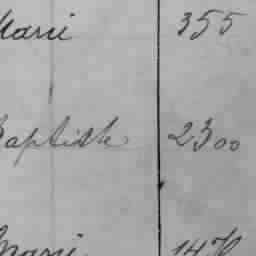 Marie 355
Baptiste 2300
Marie 147